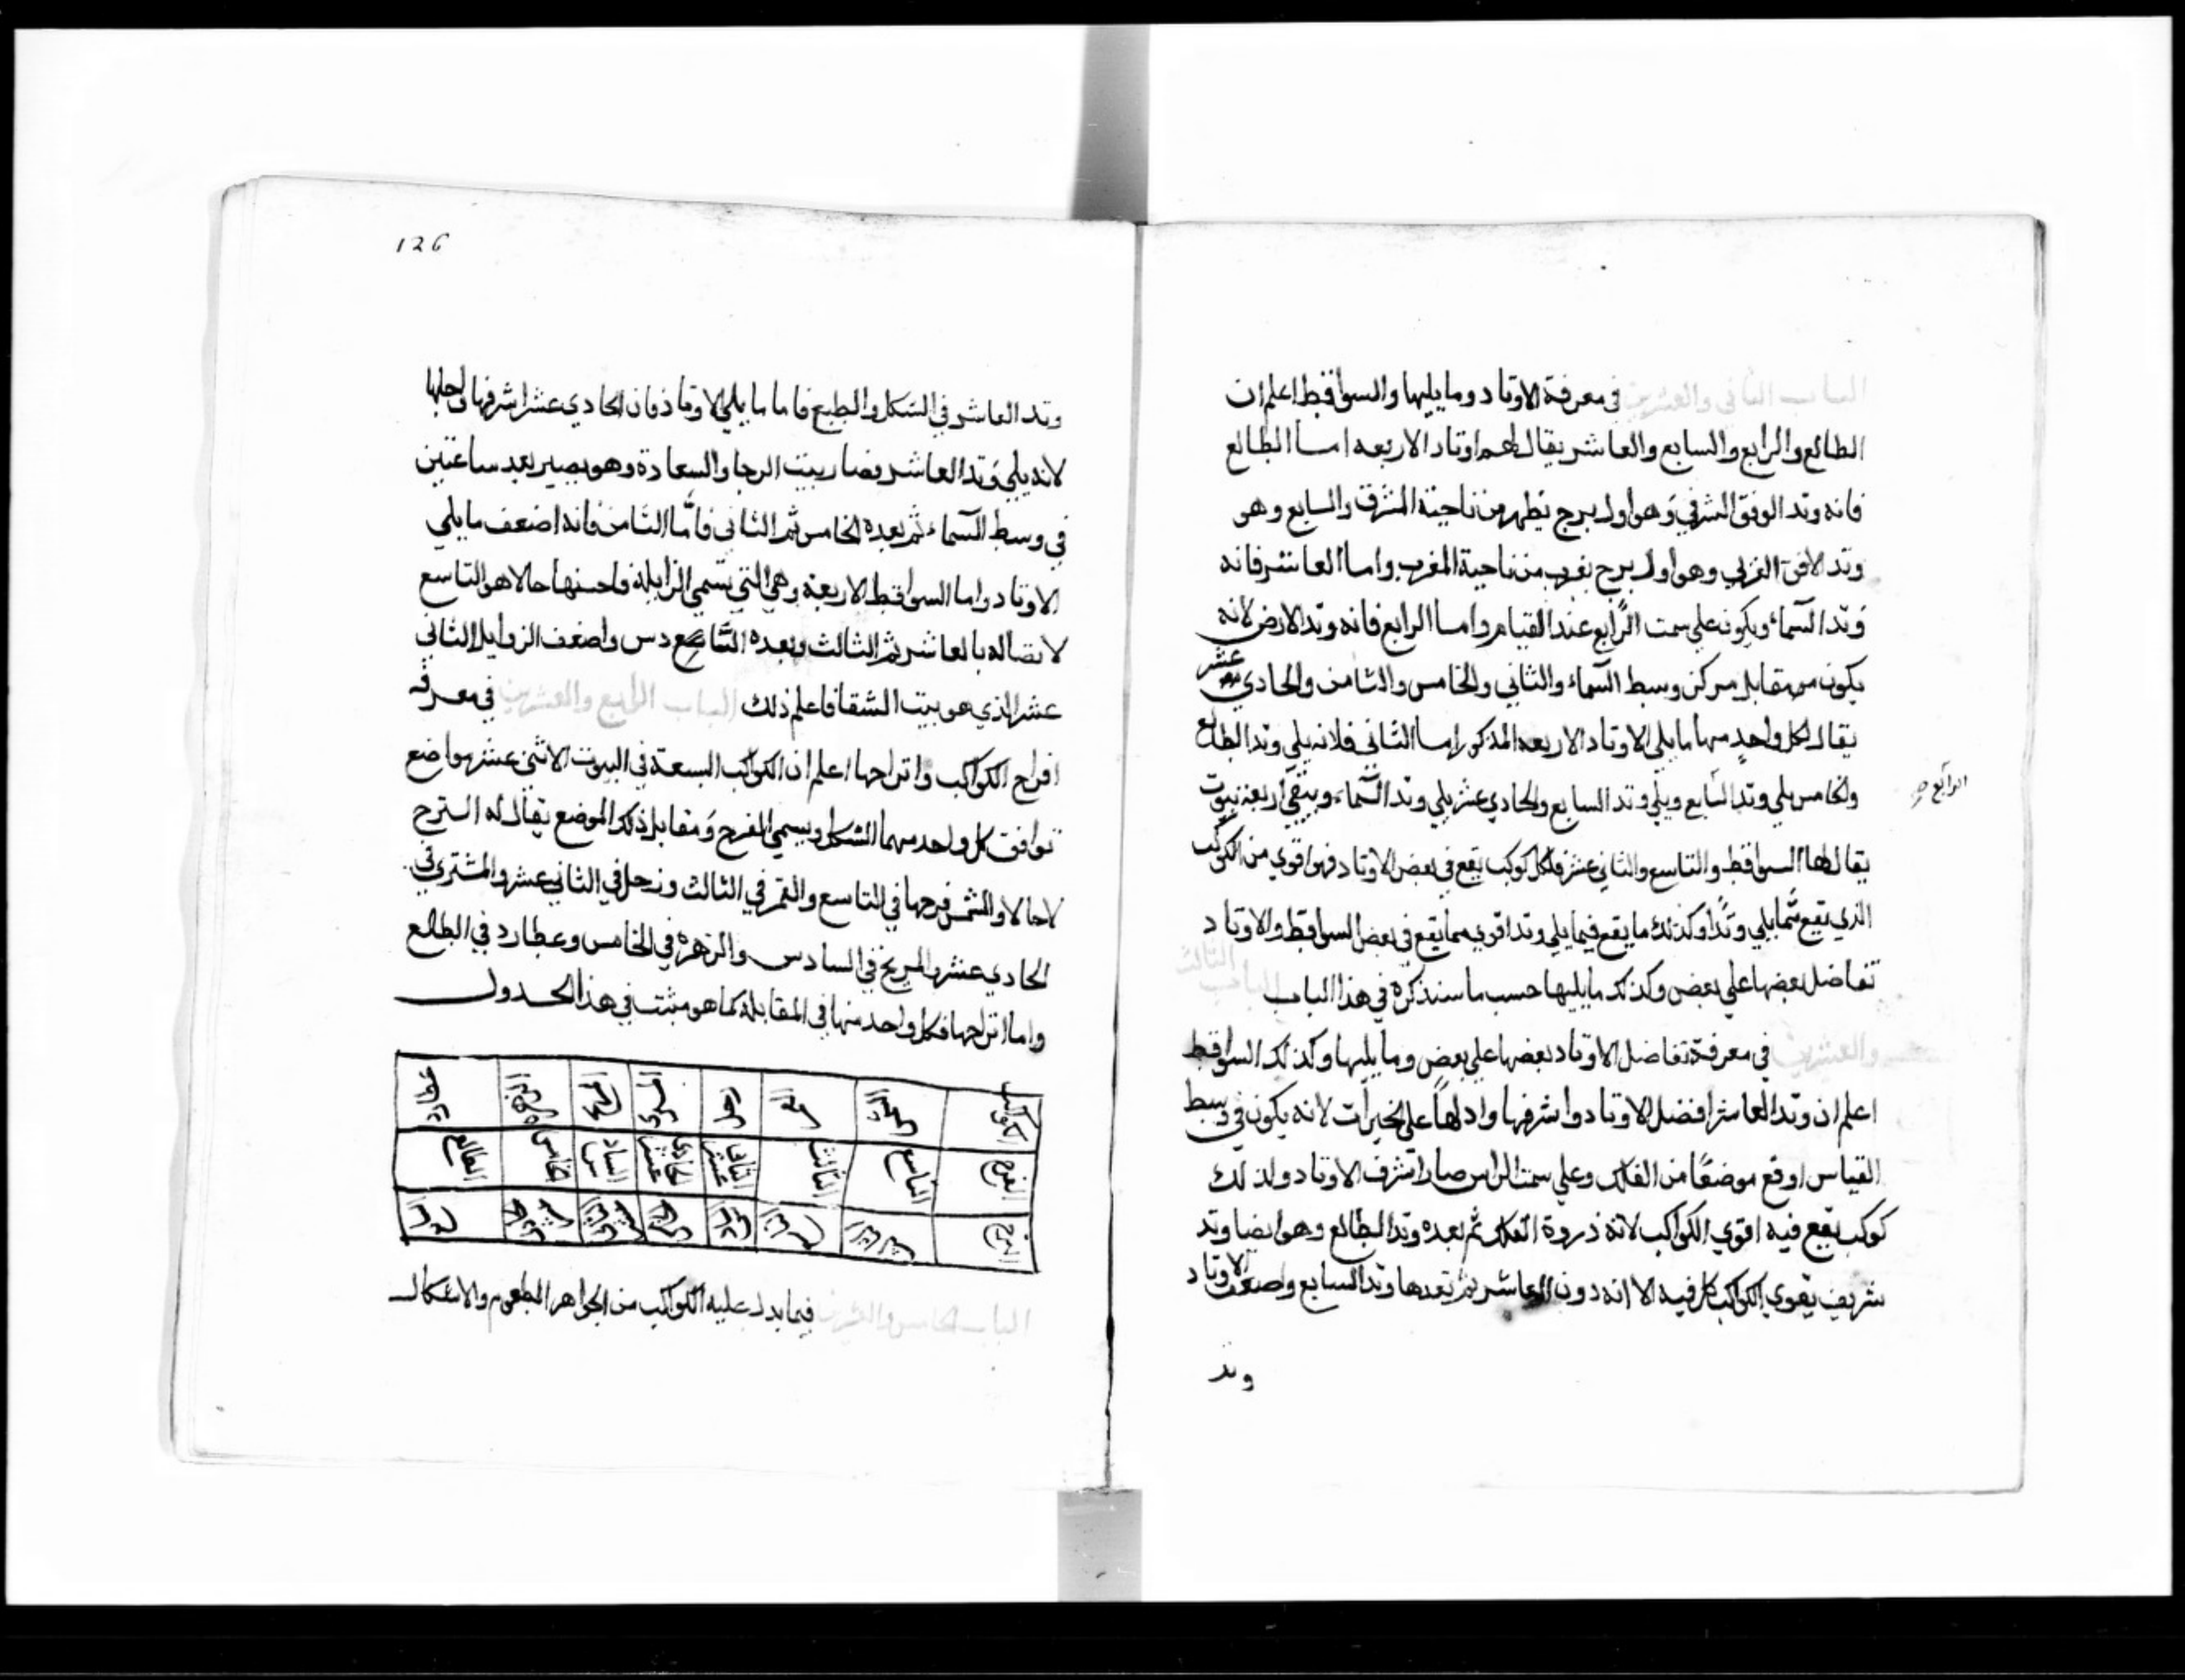 الباب الثاني والعشرين في معرفة الاوتاد وما يليها والسواقط اعلم ان
الطالع والرابع والسابع والعاشر يقال لهم اوتاد الاربعه اما الطالع
فانه وتد الوفق الشرقي وهو اول برج يظهر من ناحية المشرق والسابع وهو
وتد الافق الغربي وهو اول برج يغرب من ناحية المغرب واما العاشر فانه
وتد السماء ويكون علي سمت الرابع عند القيام واما الرابع فانه وتد الارض لانه
يكون من مقابل مركز وسط السماء والثاني والخامس والثامن والحادي عشر
يقال لكل واحد منها ما يلي الاوتاد الاربعه المذكور اما الثاني فلانه يلي وتد الطالع
والخامس يلي وتد السابع ويلي وتد السابع والحادي عشر يلي وتد السماء ويبقي اربعة بيوت
الرابع
يقال لها السواقط والتاسع والثاني عشر فلكل كوكب يقع في بعض الاوتاد فهو اقوي من الكوكب
الذي يقع مما يلي وتدا وكذلك ما يقع فيما يلي وتدا قوي مما يقع في بعض السواقط والاوتاد
تفاضل بعضها علي بعض وكذلك ما يليها حسب ما سنذكره في هذا الباب الباب الثالث
والعشرين في معرفة تفاضل الاوتاد بعضها علي بعض وما يليها وكذلك السواقط
اعلم ان وتد العاشر افضل الاوتاد واشرفها وادلها علي الخيرات لانه يكون في وسط
القياس اوقع موضعا من الفلك وعلي سمت الراس صار اشرف الاوتاد ولذلك
كوكب يقع فيه اقوي الكواكب لانه ذروة الفلك ثم بعده وتد الطالع وهو ايضا وتد
شريف يقوي الكواكب كل فيه الا انه دون العاشر ثم بعدها وتد السابع واضعف الاوتاد
وتد
126
وتد العاشر في الشكل والطبع فاما ما يلي الاوتاد فان الحادي عشر اشرفها واجلها
لانه يلي وتد العاشر فصار بيت الرجا والسعادة وهو يصير بعد ساعتين
في وسط السماء ثم بعده الخامس ثم الثاني فاما الثامن فانه اضعف ما يلي
الاوتاد واما السواقط الاربعة وهي التي تسمي الزايلة فاحسنها حالا هو التاسع
لاتصاله بالعاشر ثم الثالث وبعده السادس واضعف الزوايل الثاني
عشر الذي هو بيت الشقا فاعلم ذلك الباب الرابع والعشرين في معرفة
افراح الكواكب واتراحها اعلم ان الكواكب السبعة في البيوت الاثني عشر مواضع
توافق كل واحد منهما الشكل ويسمي المفرح ومقابل ذلك الموضع يقال له الترح
لاحالا والشمس فرحها في التاسع والقمر في الثالث وزحل في الثاني عشر والمشتري في
الحادي عشر والمريخ في السادس والزهرة في الخامس وعطارد في الطالع
واما اتراحها فكل واحد منها في المقابلة كما هو مثبت في هذا الجدول
الكواكب الشمس القمر زحل المشتري المريخ الزهره عطارد
الفرح التاسع الثالث الثاني عشر الحادي عشر السادس الخامس الطالع
الترح
الباب الخامس والعشرين فيما يدل عليه الكواكب من الجواهر والطعوم والاشكال